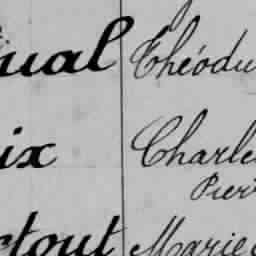 ual Théodu
ix Charle
Pier
tout Marie